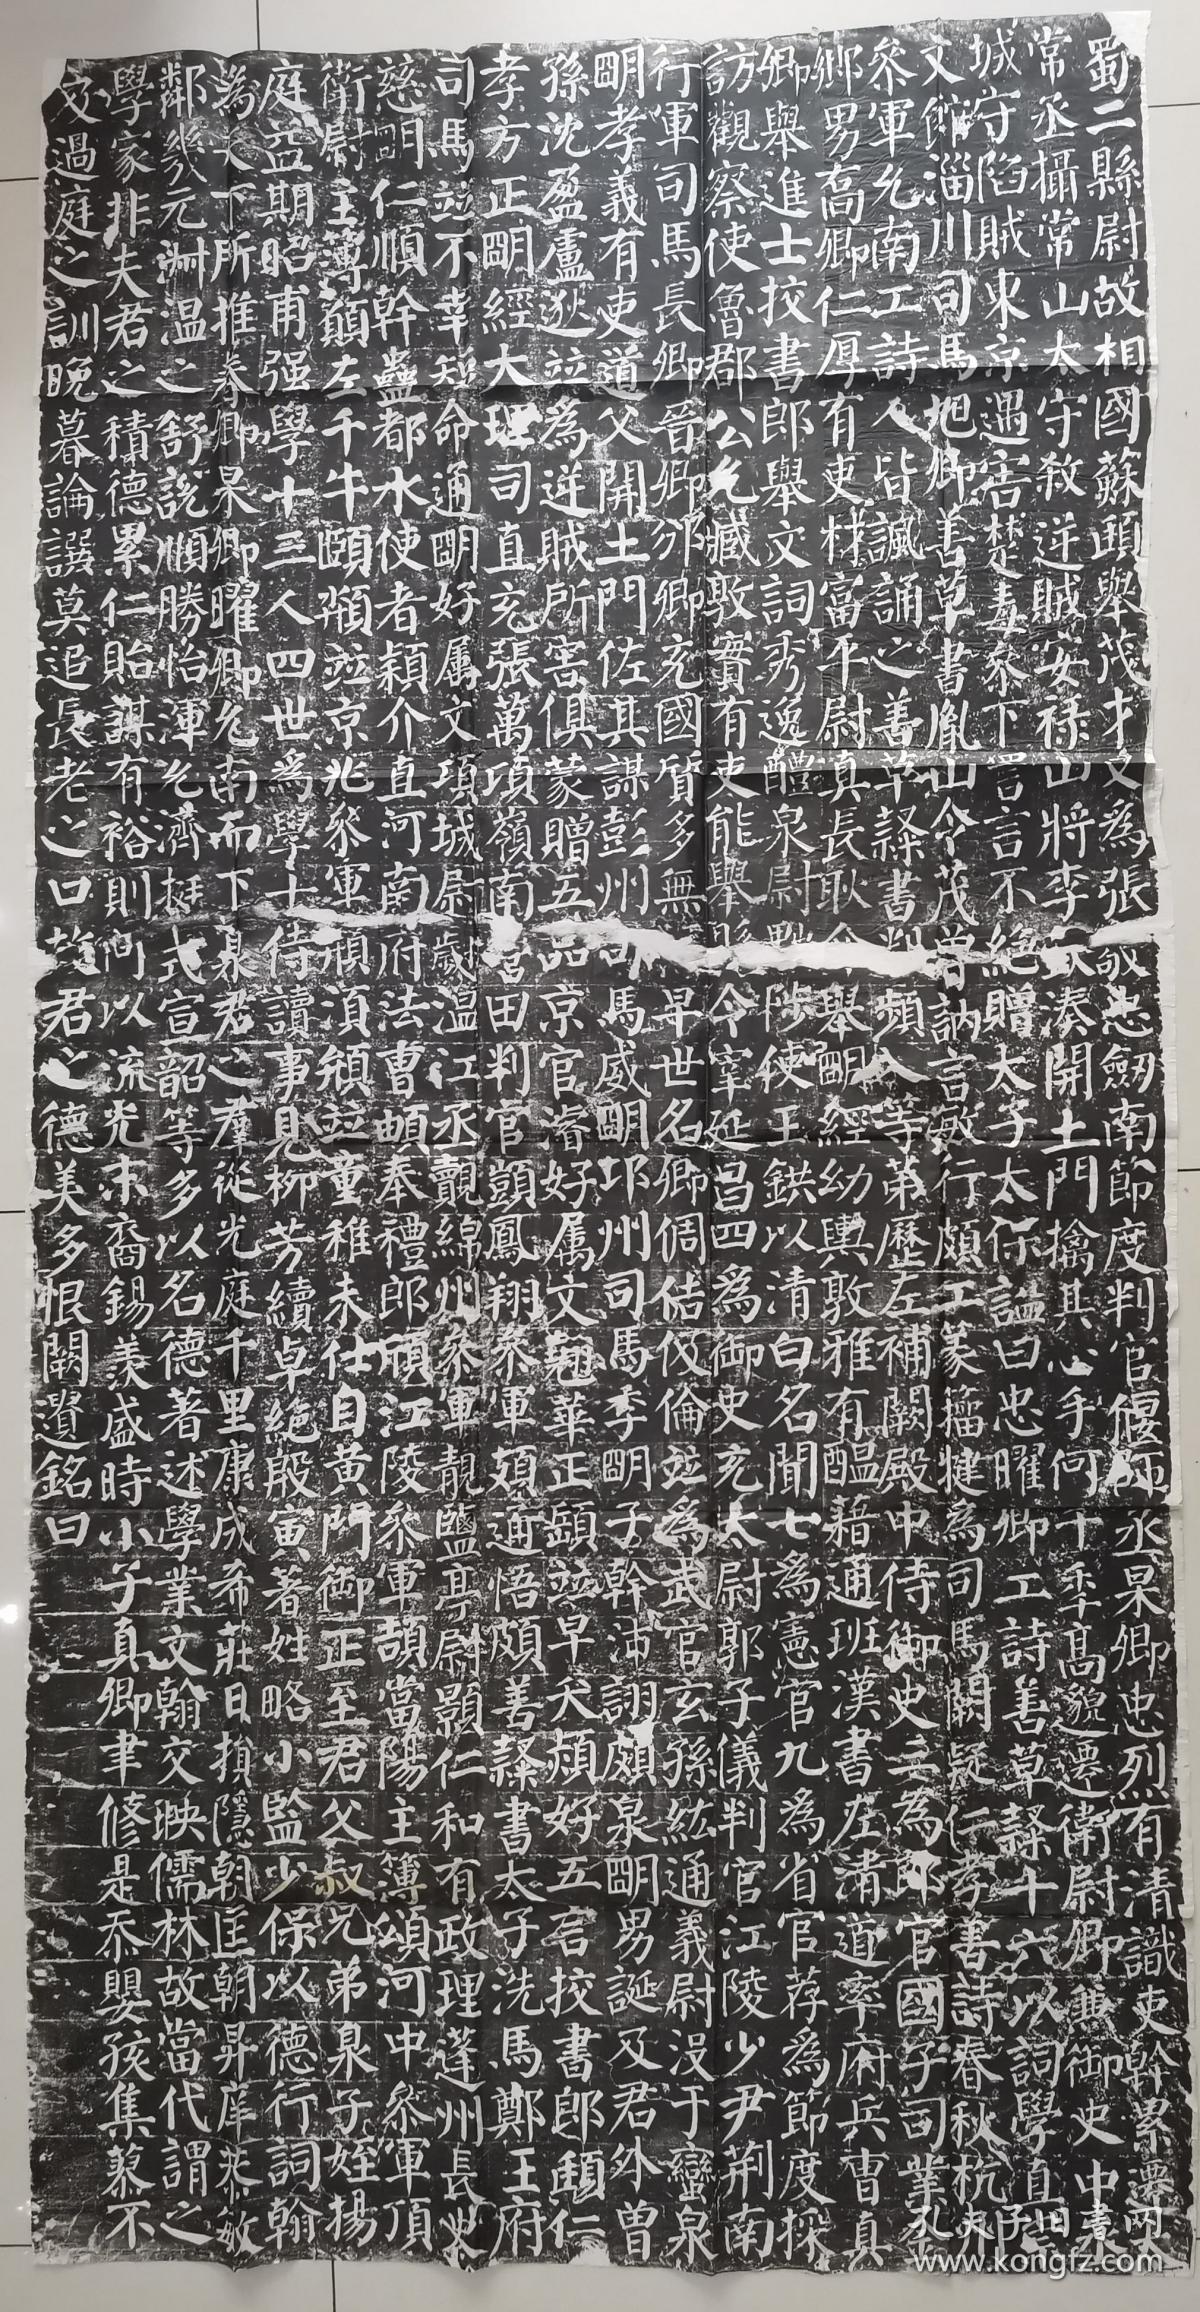 蜀二縣尉故相國蘇頲舉茂才又為張敬忠劒南節度判官偃師丞杲卿忠烈有清識吏幹累遷太
常丞攝常山太守殺逆賊安祿山將李欽湊開土門擒其心手何千年高邈遷衛尉卿兼御史中丞
城守陷賊東京遇害楚毒參下詈言不絕贈太子太保謚曰忠曜卿工詩善草隸十六以詞學直崇
文館淄川司馬旭卿善草書胤山令茂曾訥言敏行頗工篆籀犍為司馬闕疑仁孝善詩春秋杭州
參軍允南工詩人皆諷誦之善草隸書判頻入等第歷左補闕殿中侍御史三為郎官國子司業金
鄉男喬卿仁厚有吏材富平尉真長耿介舉明經幼輿敦雅有醞藉通班漢書左清道率府兵曹真
卿舉進士挍書郎舉文詞秀逸醴泉尉黜陟使王鉷以清白名聞七為憲官九為省官荐為節度採
訪觀察使魯郡公允臧敦實有吏能舉縣令宰延昌四為御史充太尉郭子儀判官江陵少尹荊南
行軍司馬長卿晉卿邠卿充國質多無早世名卿倜佶伋倫並為武官玄孫紘通義尉沒于蠻泉
明孝義有吏道父開土門佐其謀彭州司馬威明邛州司馬季明子幹沛詡頗泉明男誕及君外曾
孫沈盈盧逖並為逆賊所害俱蒙贈五品京官濬好屬文翹華正頤並早夭熲好五言校書郎頲仁
孝方正明經大理司直充張萬頃嶺南營田判官顗鳳翔參軍頍通悟頗善隸書太子洗馬鄭王府
司馬並不幸短命通明好屬文項城尉翽溫江丞覿綿州參軍靚鹽亭尉顥仁和有政理蓬州長史
慈明仁順幹蠱都水使者穎介直河南府法曹頔奉禮郎頎江陵參軍頡當陽主簿頌河中參軍頂
衛尉主簿願左千牛頤頵並京兆參軍須並童稚未仕自黃門御正至君父叔兄弟息子姪揚
庭益期昭甫強學十三人四世為學士侍讀事見柳芳續卓絕殷寅著姓略小監少保以德行詞翰
為天下所推春卿杲卿曜卿允南而下息君之羣從光庭千里康成希莊日損隱朝匡朝昇庠恭敏
鄰幾元淑溫之舒說順勝怡渾允濟挺式宣韶等多以名德著述學業文翰交映儒林故當代謂之
學家非夫君之積德累仁貽謀有裕則何以流光末裔錫羨盛時小子真卿聿修是忝嬰孩集蓼不
及過庭之訓晚暮論譔莫追長老之口故君之德美多恨闕遺銘曰
孔夫子旧书网
www.kongfz.com